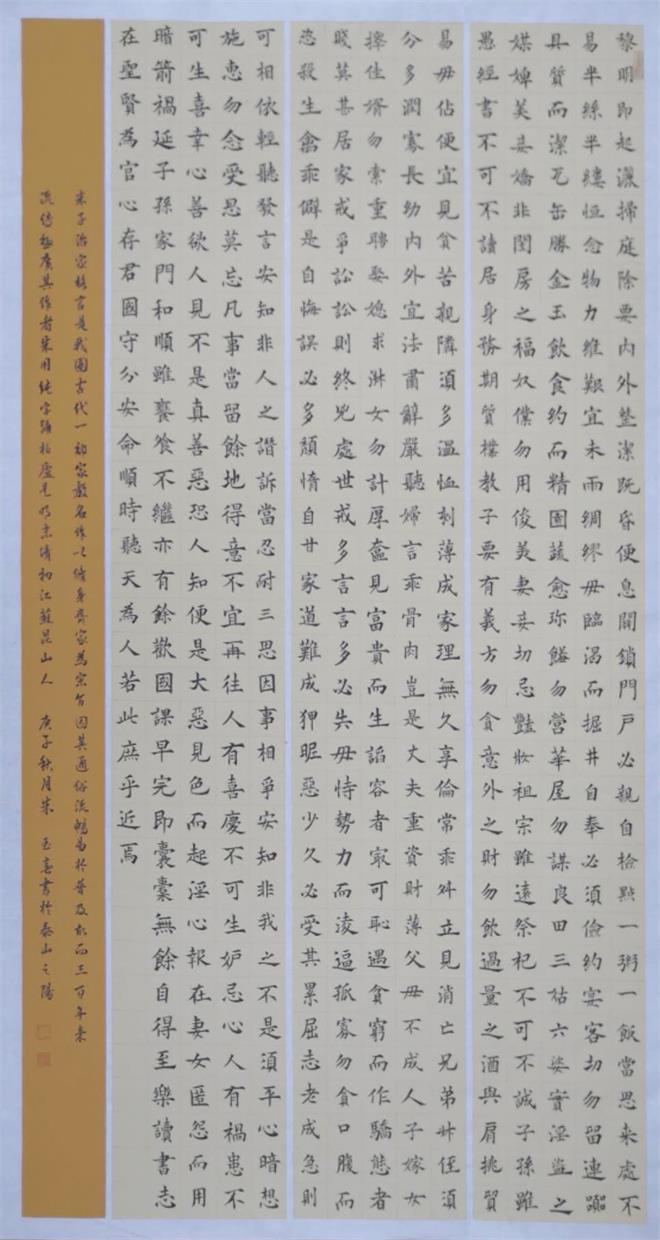 黎明即起灑掃庭除要內外整潔既昏便息關鎖門戶必親自檢點一粥一飯當思来處不
易半絲半縷恒念物力維艱宜未雨綢繆毋臨渴而掘井自奉必須儉約宴客切勿留連器
具質而潔瓦缶勝金玉飲食約而精園蔬愈珍饈勿營華屋勿謀良田三姑六婆實淫盜之
媒婢美妾嬌非閨房之福奴僕勿用俊美妻妾切忌豔妝祖宗雖遠祭祀不可不誠子孫雖
愚經書不可不讀居身務期質樸教子要有義方勿貪意外之財勿飲過量之酒與肩挑貿
易毋佔便宜見貧苦親隣須多溫恤刻薄成家理無久享倫常乖舛立見消亡兄弟叔侄須
分多潤寡長幼內外宜法肅辭嚴聽婦言乖骨肉豈是丈夫重資財薄父毋不成人子嫁女
擇佳婿勿索重聘娶媳求淋女勿計厚奩見富貴而生諂容者冣可恥遇貧窮而作驕態者
賤莫甚居家戒爭訟訟則終兇處世戒多言言多必失毋恃勢力而淩逼孤寡勿貪口腹而
恣殺生禽乖僻是自悔誤必多頹惰自甘家道難成狎昵惡少久必受其累屈志老成急則
可相依輕聽發言安知非人之譖訴當忍耐三思因事相爭安知非我之不是須平心暗想
施惠勿念受恩莫忘凡事當留餘地得意不宜再往人有喜慶不可生妒忌心人有禍患不
可生喜幸心善欲人見不是真善惡恐人知便是大惡見色而起淫心報在妻女匿怨而用
暗箭禍延子孫家門和順雖饔飧不繼亦有餘歡國課早完即囊橐無餘自得至樂讀書志
在聖賢為官心存君國守分安命順時聽天為人若此庶乎近焉
朱子治家格言是我國古代一部家教名作以修身齊家為宗旨因其通俗流暢易於普及故而三百年来
流傳極廣其作者朱用純字號柏廬是明末清初江蘇昆山人 庚子秋月朱玉 書於泰山之陽